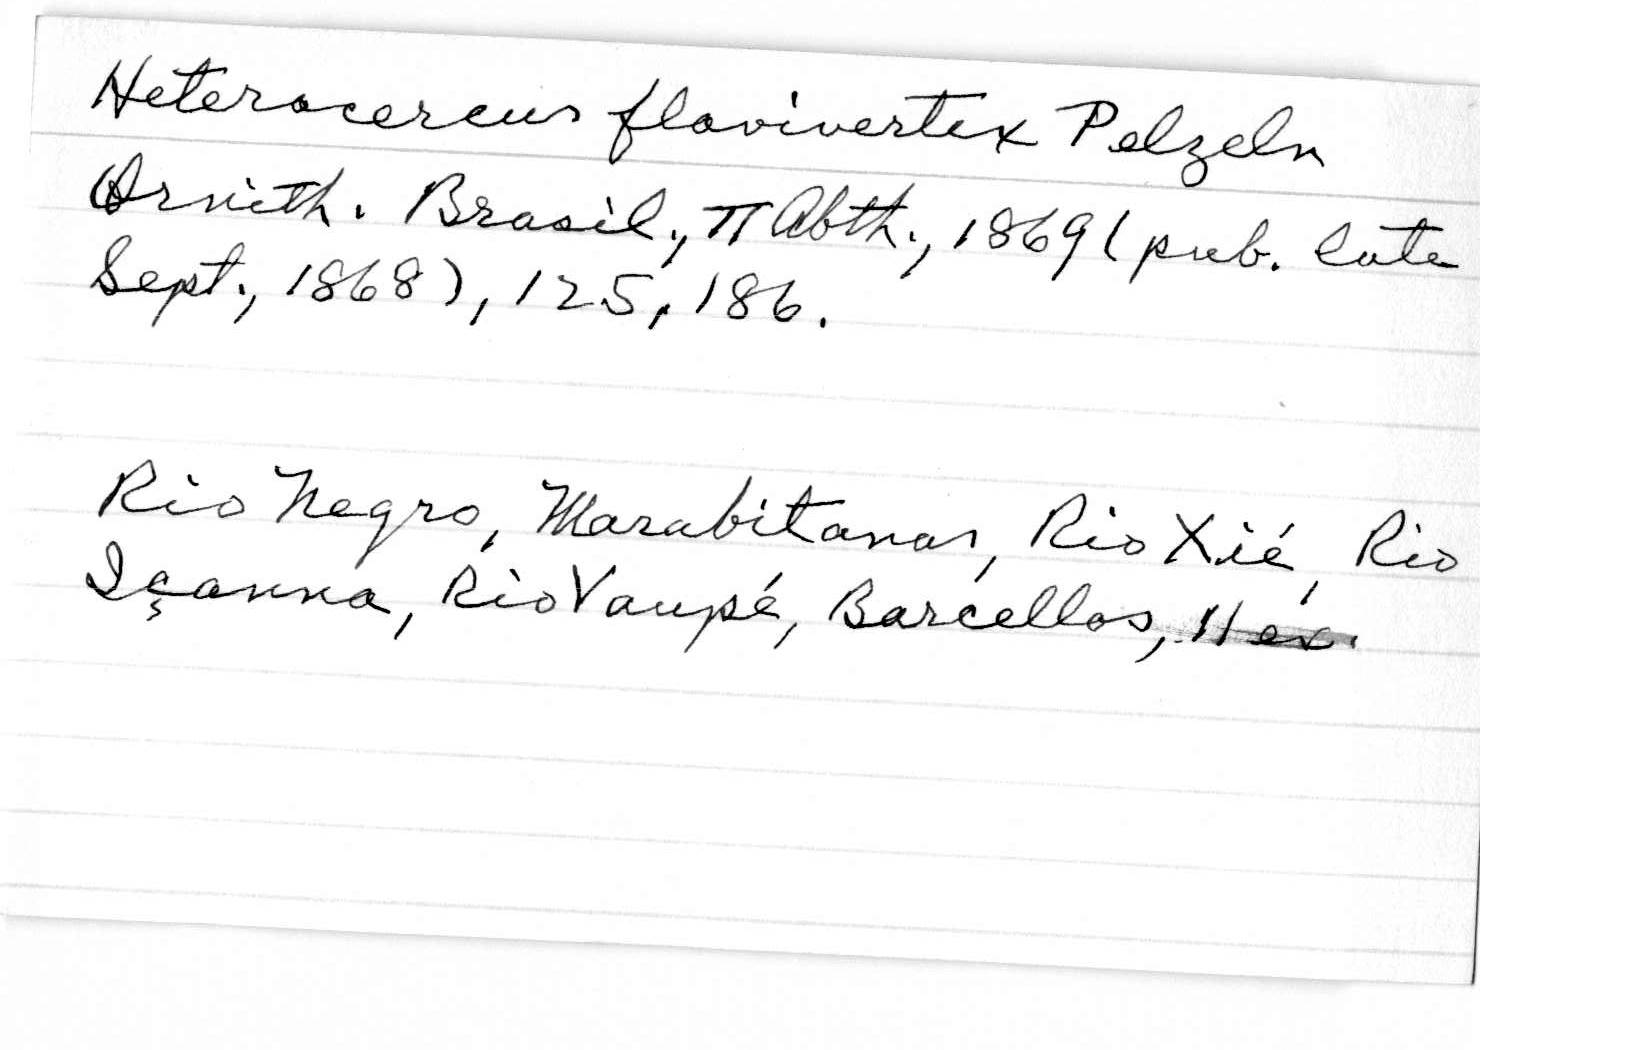 Heterocercus flavivertex Pelzeln
Ornith. Brasil., II Abth., 1869 (pub. late
Sept., 1868), 125, 186.
Rio Negro, Marabitanas, Rio Xié, Rio
Içanna, Rio Vaupé, Barcellos, 11 ex.